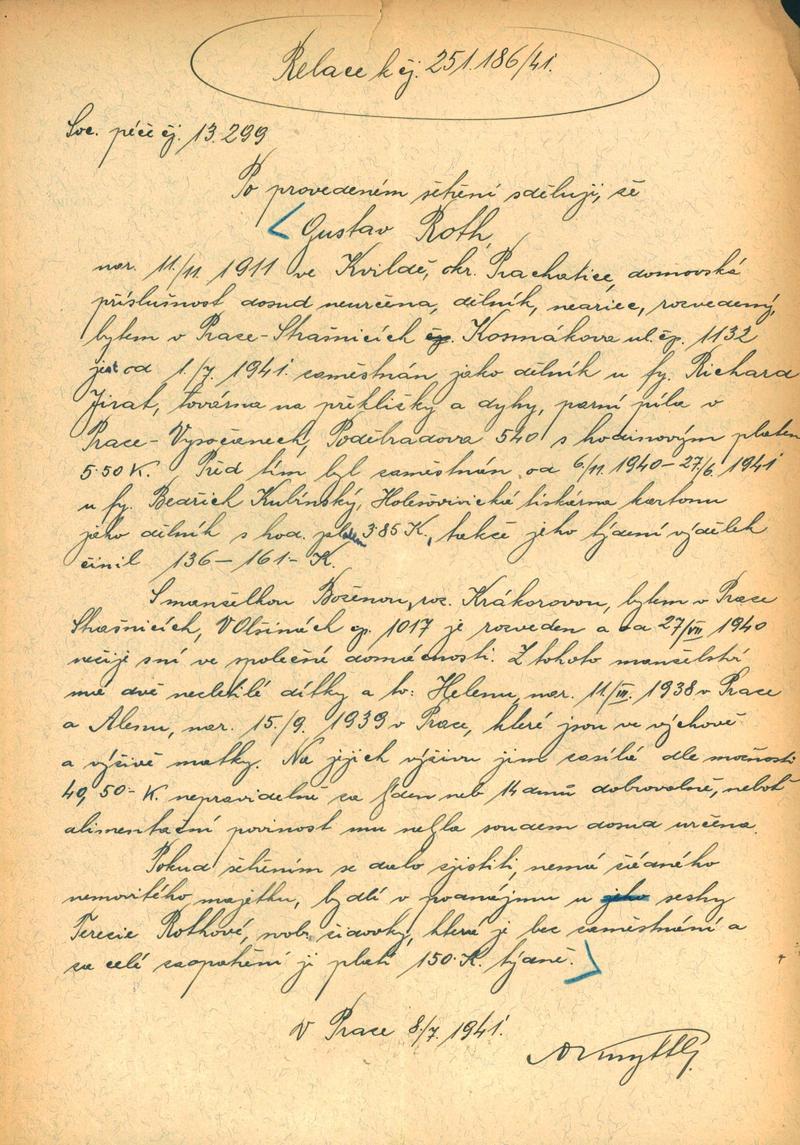 Relace k čj. 251.186/41.
Soc. péče čj. 13.299
Po provedeném šetření sděluji, že
Gustav Roth,
nar. 11./11. 1911 ve Kvildě, okr. Prachatice, domovská
příslušnost dosud neurčena, dělník, neariec, rozvedený,
bytem v Praze-Strašnicích čp. Kosmákova ul. čp. 1132
jest od 1./7. 1941. zaměstnán jako dělník u fy. Richard
Jirat, továrna na překližky a dyhy, parní pila v
Praze-Vysočanech, Poděbradova 540 s hodinovým platem
5.50 K. Před tím byl zaměstnán od 6/11. 1940-27/6. 1941
u fy. Bedřich Kubínský, Holešovická tiskárna kartonu
jako dělník s hod. platem 3.85 K., takže jeho týdení výdělek
činil 136-161- K.
S manželkou Boženou, roz. Krákorovou, bytem v Praze
Strašnicích, V Olšinách čp. 1017 je rozveden a od 27/VII 1940
nežije s ní ve společné domácnosti. Z tohoto manželství
má dvě nezletilé dítky a to: Helenu, nar. 11/III. 1938 v Praze
a Alenu, nar. 15./9. 1939 v Praze, které jsou ve výchově
a výživě matky. Na jejich výživu jim zasílá dle možnosti
40, 50- K. nepravidelně za týden neb 14 dnů dobrovolně, neboť
alimentační povinost mu nebyla soudem dosud určena.
Pokud šetřením se dalo zjistiti, nemá žádného
nemovitého majetku, bydlí v podnájmu u jeho sestry
Terezie Rothové, svob. židovky, která je bez zaměstnání a
za celé zaopatření jí platí 150.K. týdně.
V Praze 8./7. 1941.